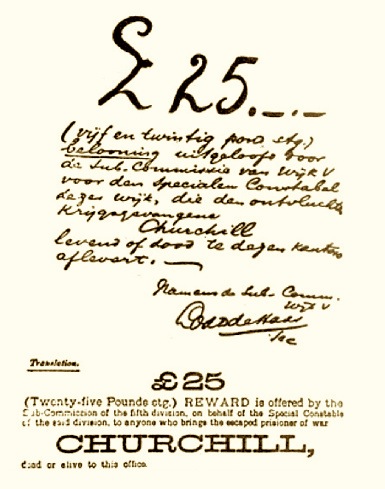 £ 25.—.—
(vijf en twintig pond stg.)
belooning uitgeloofd door
de Sub. Commissie van Wijk V
voor den specialen Constabel
dezes wijk, die den ontvluchte
Krijgsgevangene
Churchill
levend of dood te dezen kantore
aflevert. —
Namens de Sub-Comm.
Wijk V
Sec
Translation.
£25
(Twenty-five Pounds stg.) REWARD is offered by the
Sub-Commission of the fifth division, on behalf of the Special Constable
of the said division, to anyone who brings the escaped prisioner of war
CHURCHILL,
dead or alive to this office.